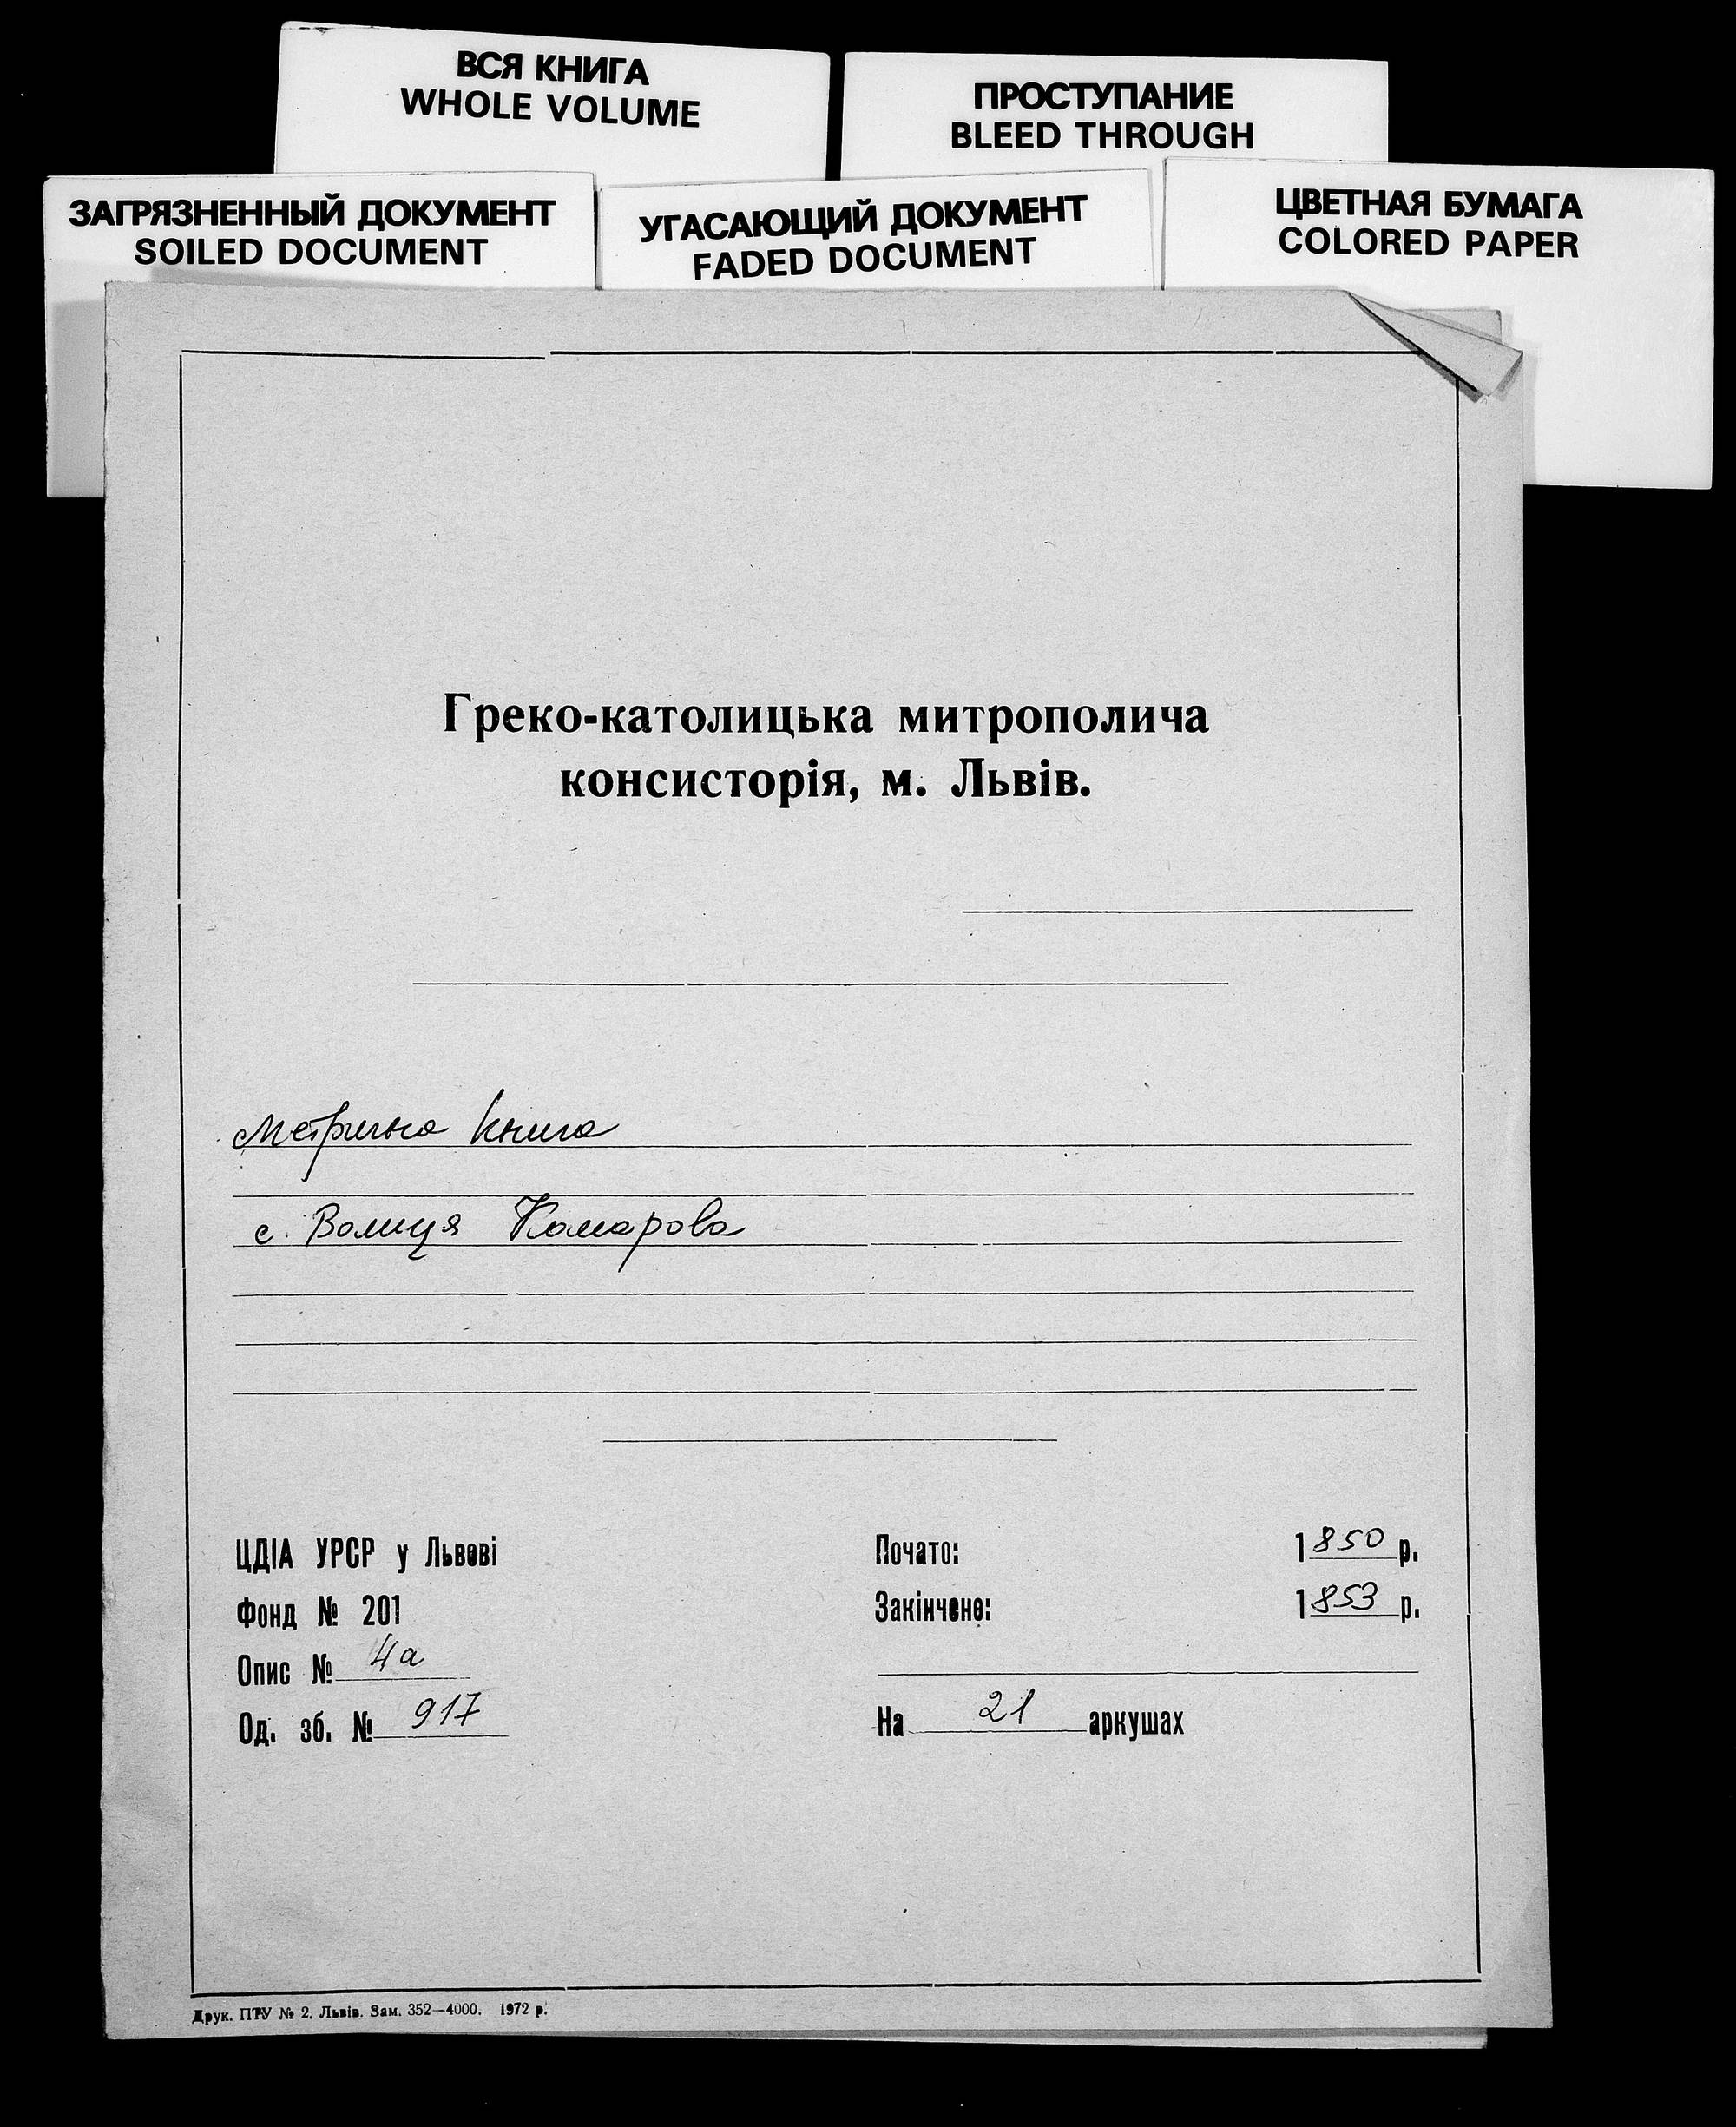 ВСЯ КНИГА
WHOLE VOLUME
ПРОСТУПАНИЕ
BLEED THROUGH
ЗАГРЯЗНЕННЫЙ ДОКУМЕНТ
SOILED DOCUMENT
УГАСАЮЩИЙ ДОКУМЕНТ
FADED DOCUMENT
ЦВЕТНАЯ БУМАГА
COLORED PAPER
Греко-католицька митрополича
консисторія, м. Львів.
Метрична книга
с. Волиця Комарова
ЦДІА УРСР у Львові
Фонд № 201
Опис № 4а
Од. зб. № 917
Почато: 1850 р.
Закінчено: 1853 р.
На 21 аркушах
Друк. ПТУ № 2. Львів. Зам. 352—4000. 1972 р.